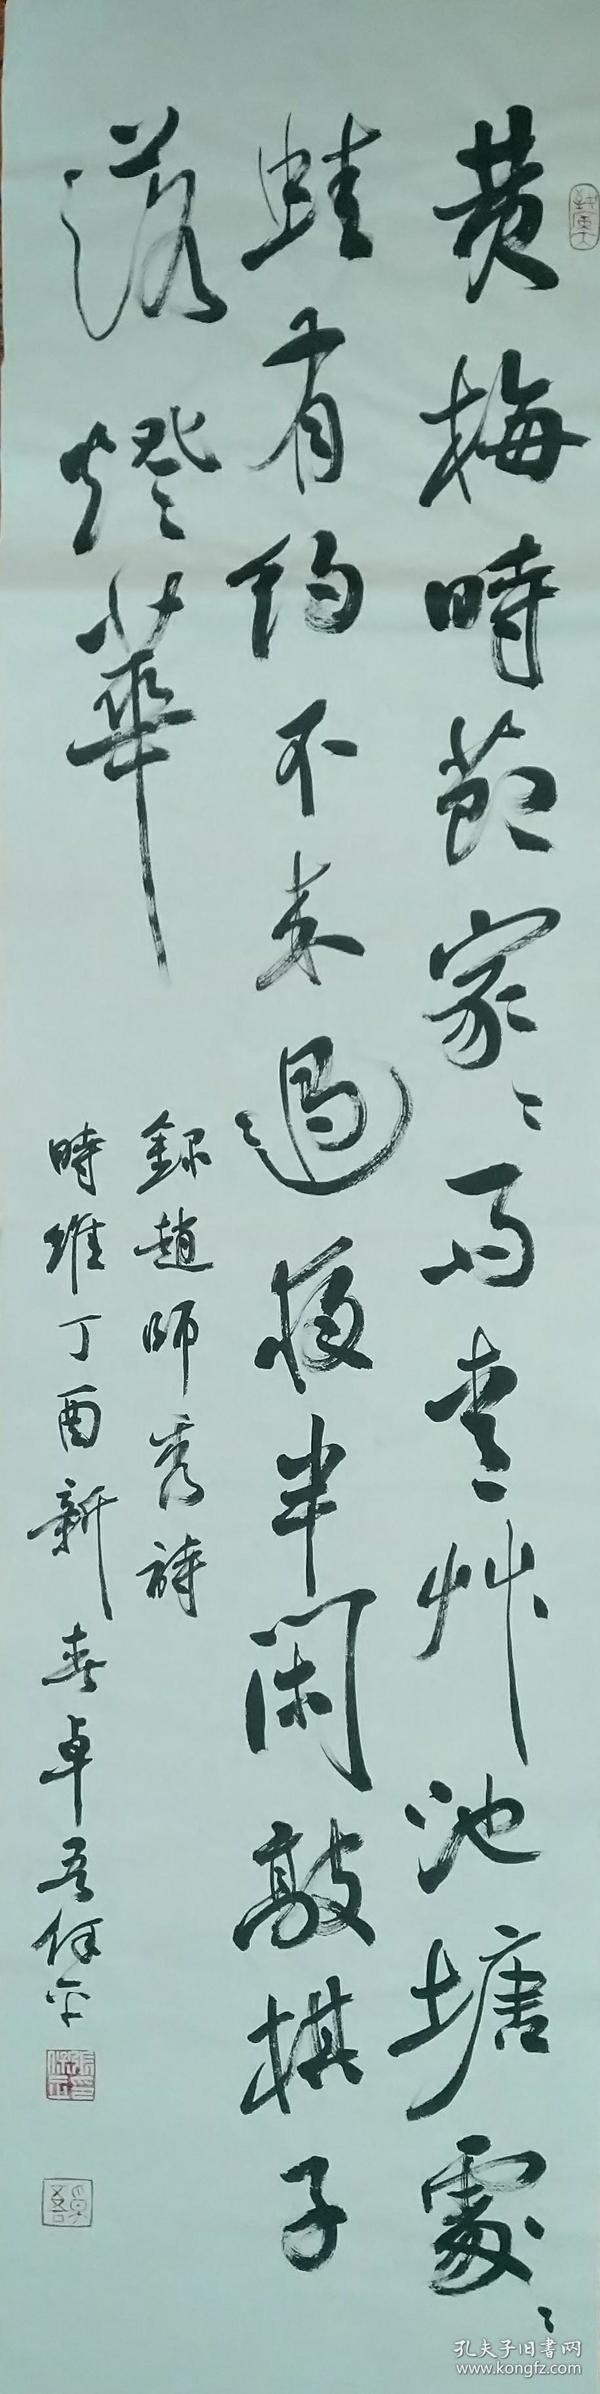 黄梅時節家〻雨青艸池塘處〻
蛙有約不来過夜半閑敲棋子
落燈華
録趙師秀詩
時維丁酉新春卓吾何平
孔夫子旧書网
www.kongfz.com